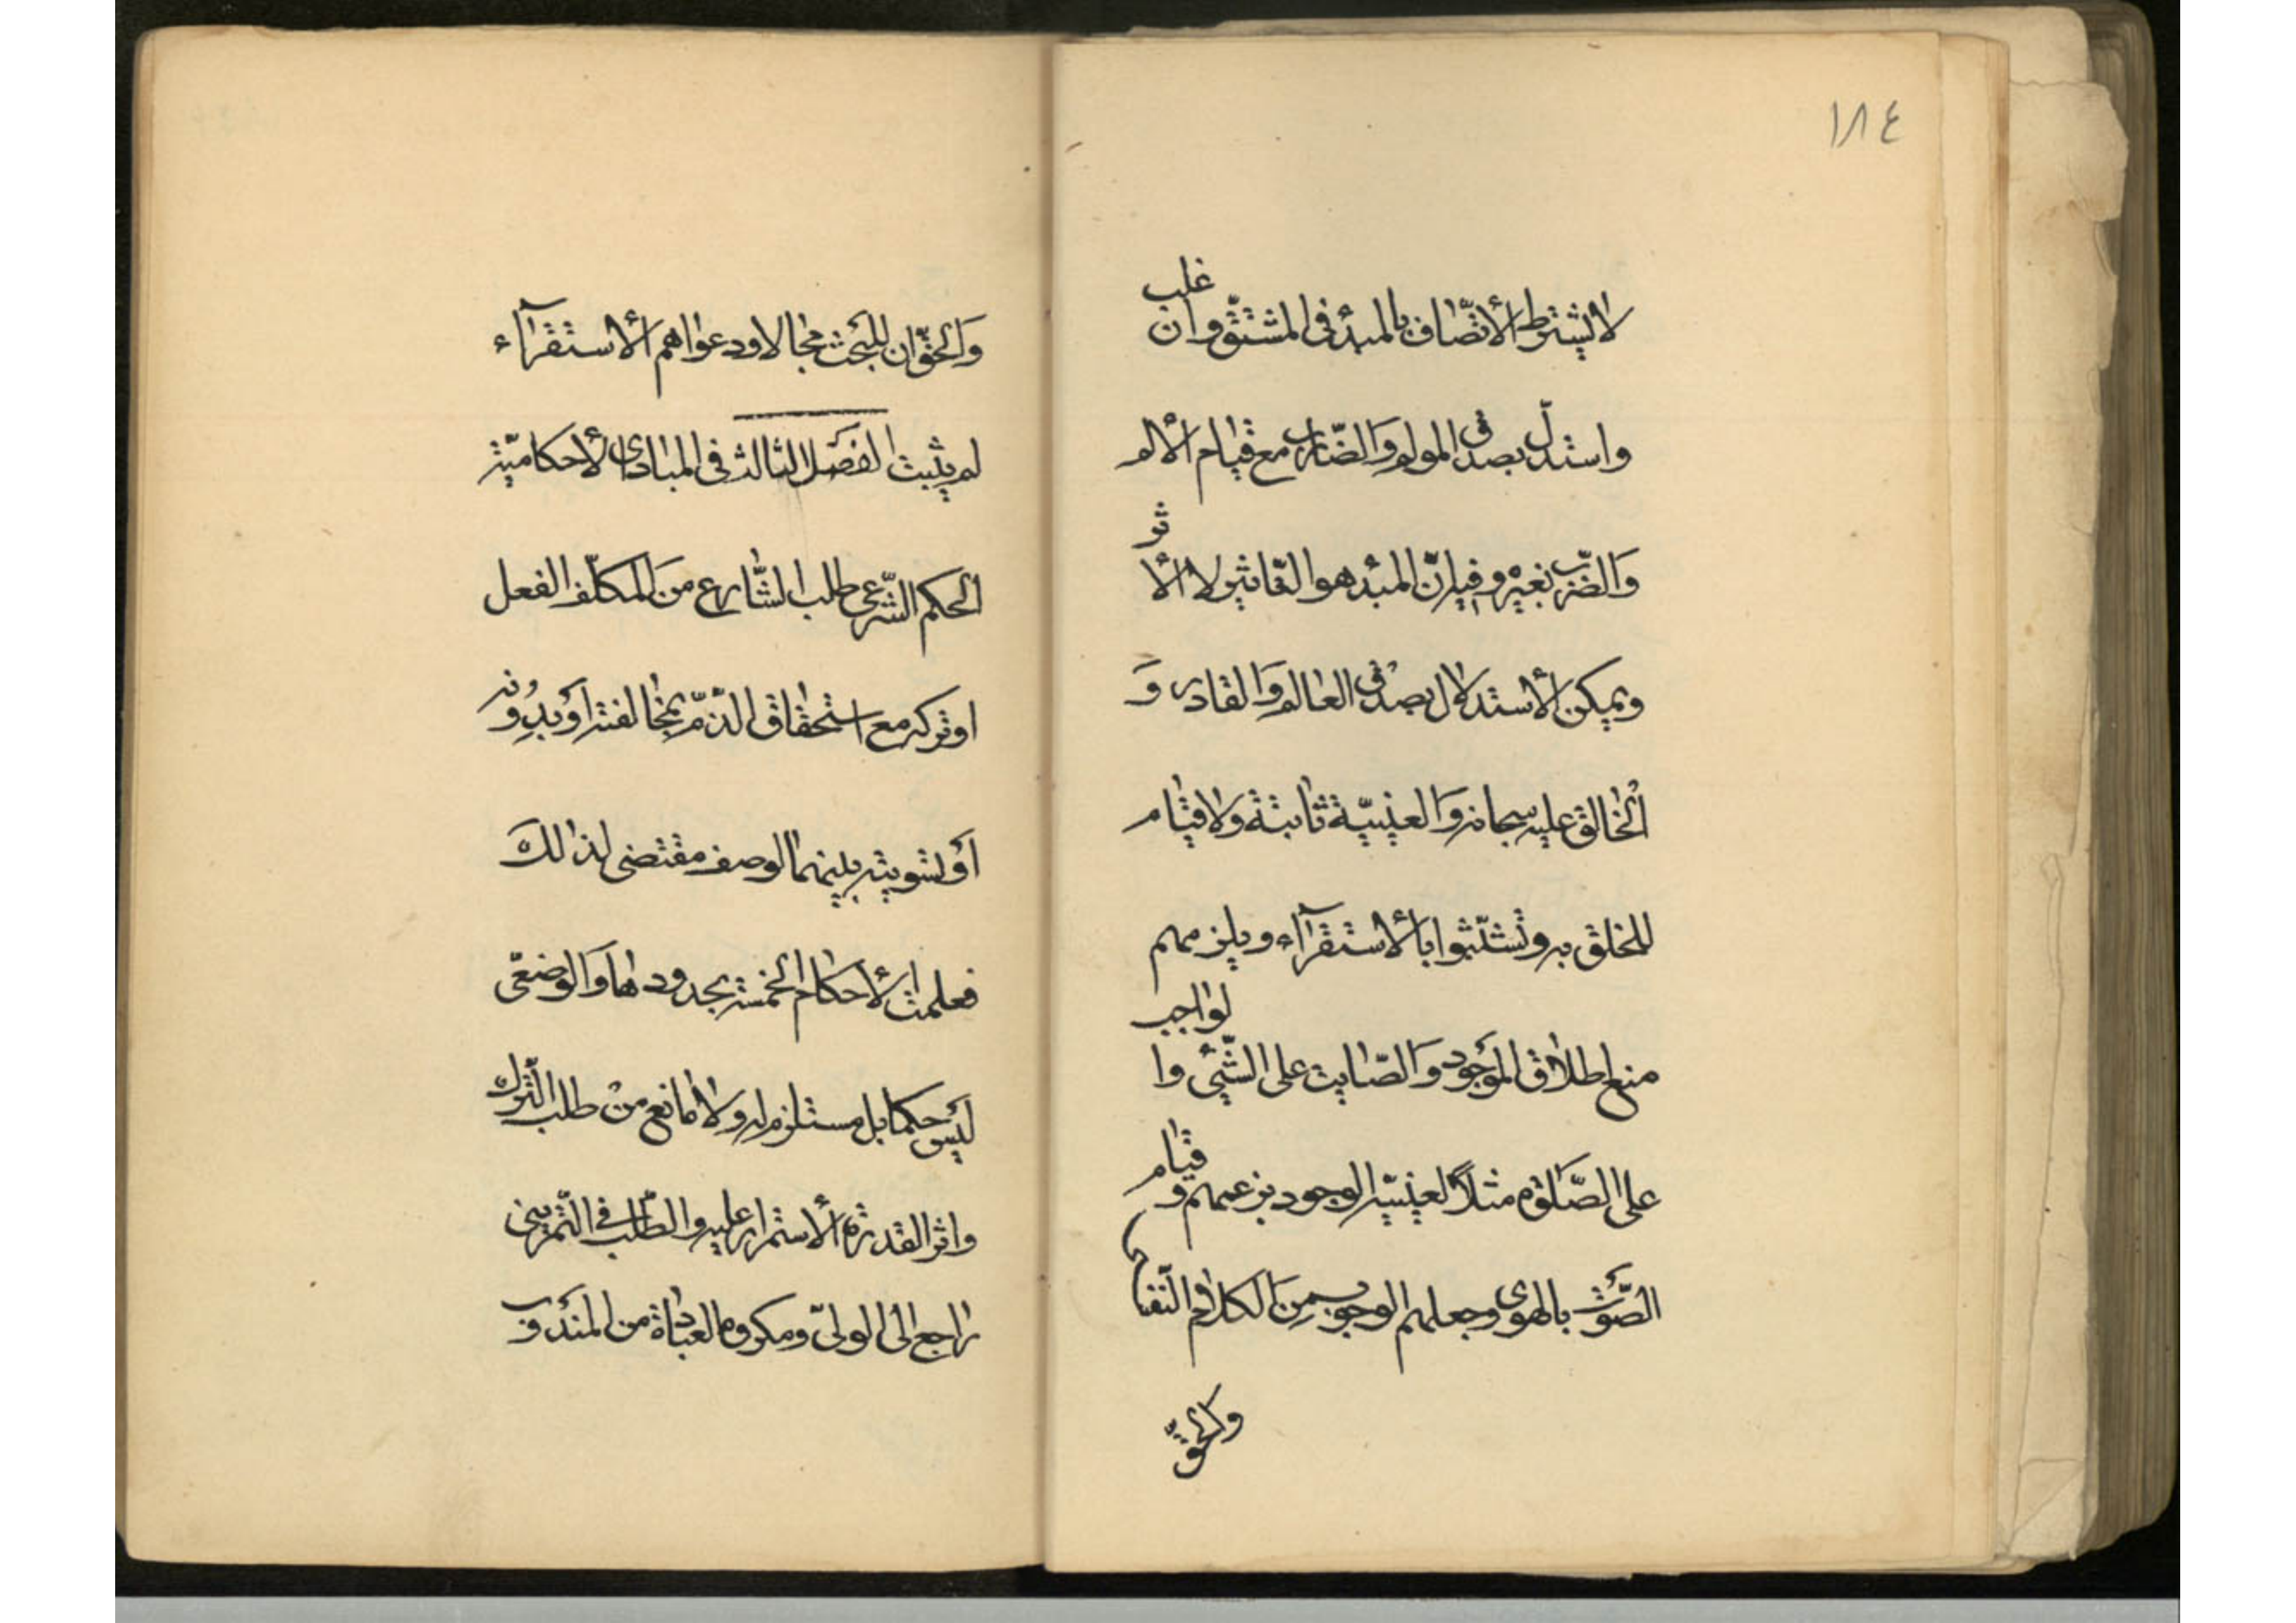 ١٨٤
لا يشترط الأتّصاف بالمبدٔ فى المشتقّ وان غلب
واستدلّ بصدق المولم وَالضّارب مع قيام الألم
وَالضّرب بغيره وفيه انّ المبدٔ هو التّاثير لا الأثر
ويمكن الأستدلال بصدق العالم وَالقادر وَ
الخالق عليه سبحانه وَالعينيّة ثابتة ولا قيام
للخلق به وتشبّثوا بالأستقرآء ويلزمهم
منع اطلاق الموجود وَالصّايت على الشّئ والواجب
على الصّلوة مثلاً لعينيّة الوجود بزعمهم وقيام
الصّوت بالهوى وجعلهم الوجوب من الكلام النّفسا
والحقّ
وَالحقّ ان للبحث مجالا ودعواهم الأستقرآء
لم يثبت الفصل الثالث فى المبادى الأحكاميّة
الحكم الشّرعى طلب الشّارع من المكلّف الفعل
او تركه مع استحقاق الذّمّ بمخالفته اَو بدونه
اَو تسويته بينهما لوصف مقتضى لذلك
فعلمت الأحكام الخمسة بحدودها وَالوضعى
ليس حكما بل مستلزم له ولا مانع من طلب التّرك
واثر القدرة الأستمرار عليه والطّلب فى التّمرينى
راجع الى الولىّ ومكروه العبادة من المندوب